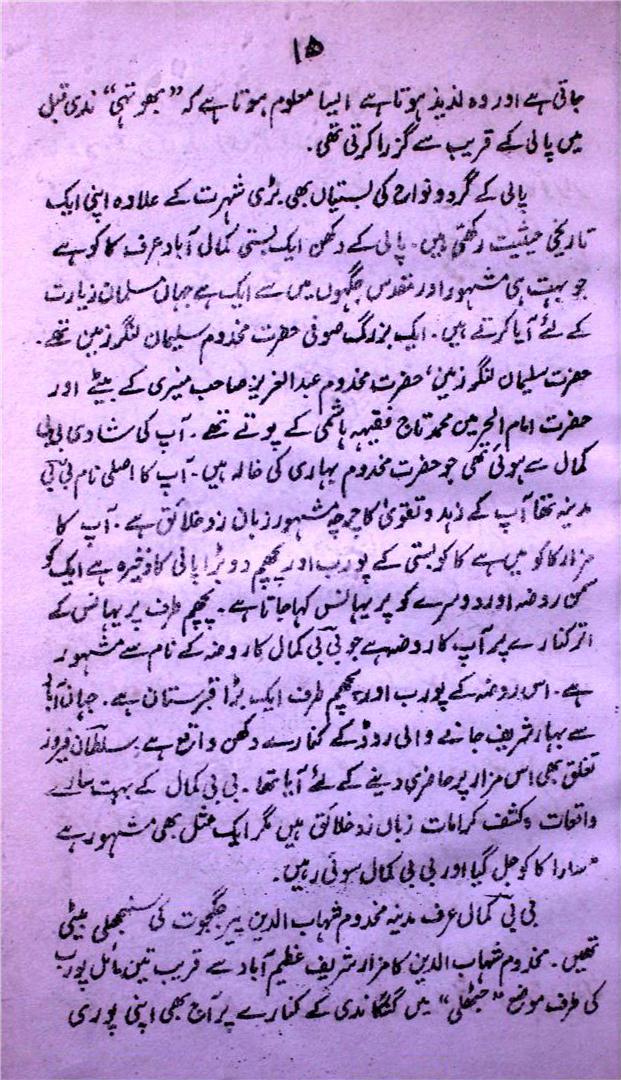 ۱۵
جاتی ہے اور وہ لذیذ ہوتا ہے ایسا معلوم ہوتا ہے کہ "بھوتہی" ندی قبل
میں پالی کے قریب سے گزرا کرتی تھی.
پالی کے گرد و نواح کی بستیاں بھی بڑی شہرت کے علاوہ اپنی ایک
تاریخی حیثیت رکھتی ہیں. پالی کے دکھن ایک بستی کمال آباد عرف کاکو ہے
جو بہت ہی مشہور اور مقدس جگہوں میں سے ایک ہے جہاں مسلمان زیارت
کے لئے آیا کرتے ہیں. ایک بزرگ صوفی حضرت مخدوم سلیمان لنگر زمین تھے.
حضرت سلیمان لنگر زمین، حضرت مخدوم عبدالعزیز صاحب منیری کے بیٹے اور
حضرت امام محمد تاج فقیہہ ہاشمی کے پوتے تھے. آپ کی شادی بی بی
کمال سے ہوئی تھی جو حضرت مخدوم بہاری کی خالہ ہیں. آپ کا اصلی نام بی بی
مدینہ تھا آپ کے زہد و تقویٰ کا چرچہ مشہور زبان زد خلائق ہے. آپ کا
مزار کاکو میں ہے کاکو بستی کے پورب اور پچھم دو بڑا پانی کا ذخیرہ ہے ایک کو
روضہ اور دوسرے کو پریہانس کہا جاتا ہے. پچھم طرف پریہانس کے
اتر کنارے پر آپ کا روضہ ہے جو بی بی کمال کا روضہ کے نام سے مشہور
ہے. اس روضہ کے پورب اور پچھم طرف ایک بڑا قبرستان ہے. جہان آباد
سے بہار شریف جانے والی روڈ کے کنارے دکھن واقع ہے. سلطان فیروز
تغلق بھی اس مزار پر حاضری دینے کے لئے آیا تھا. بی بی کمال کے بہت سارے
واقعات و کشف کرامات زبان زد خلائق ہیں مگر ایک مثل بھی مشہور ہے
"سارا کاکو جل گیا اور بی بی کمال سوئی رہیں.
بی بی کمال عرف مدینہ مخدوم شہاب الدین پیر جگجوت کی سنجھلی بیٹی
تھیں. مخدوم شہاب الدین کا مزار شریف عظیم آباد سے قریب تین مائل پورب
کی طرف موضع "جٹھلی" میں گنگا ندی کے کنارے پر آج بھی اپنی پوری